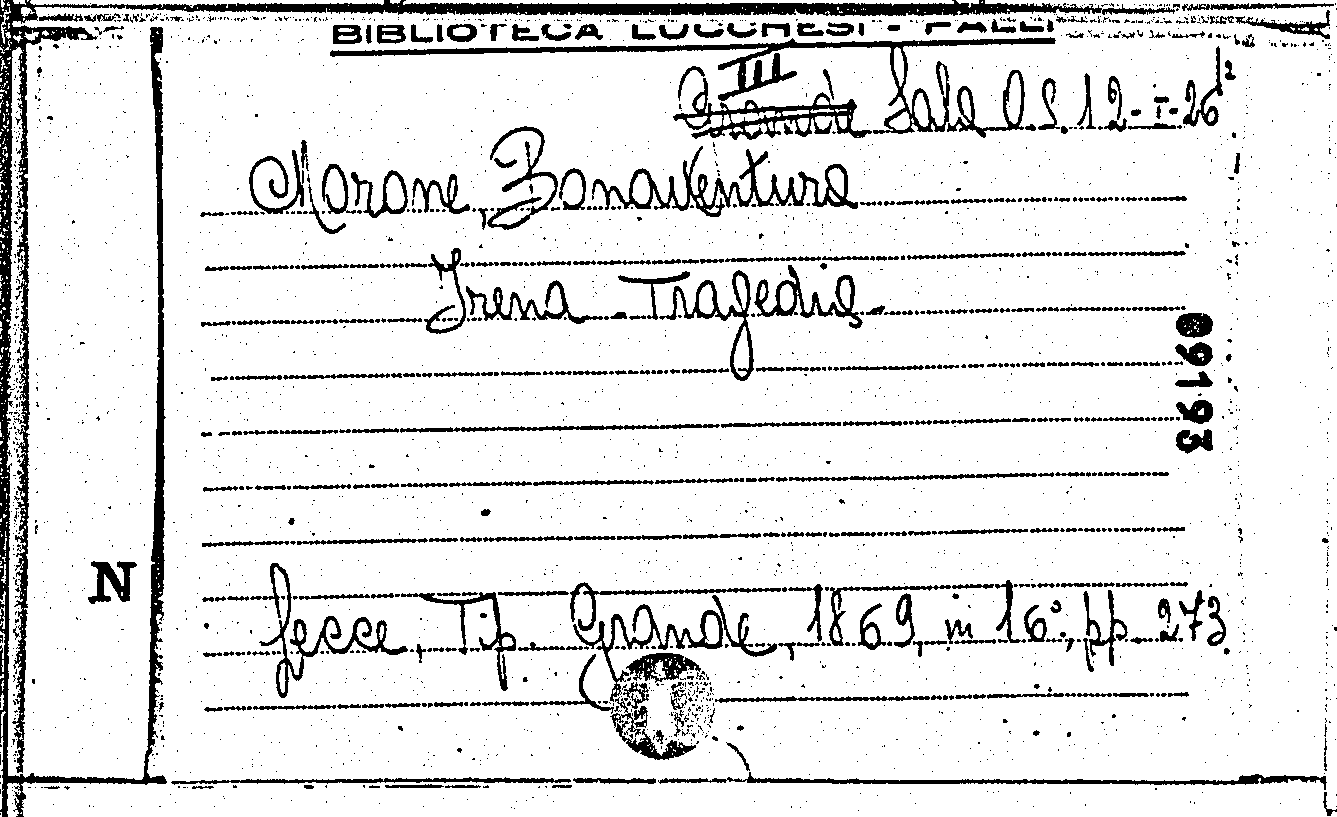 BIBLIOTECA LUCCHESI - PALLI
III
Grande Sala O.S. 12-I-26¹²
Morone, Bonaventura
Irena - Tragedia -
09193
N
Lecce, Tip. Grande, 1869, in 16°, pp. 273.